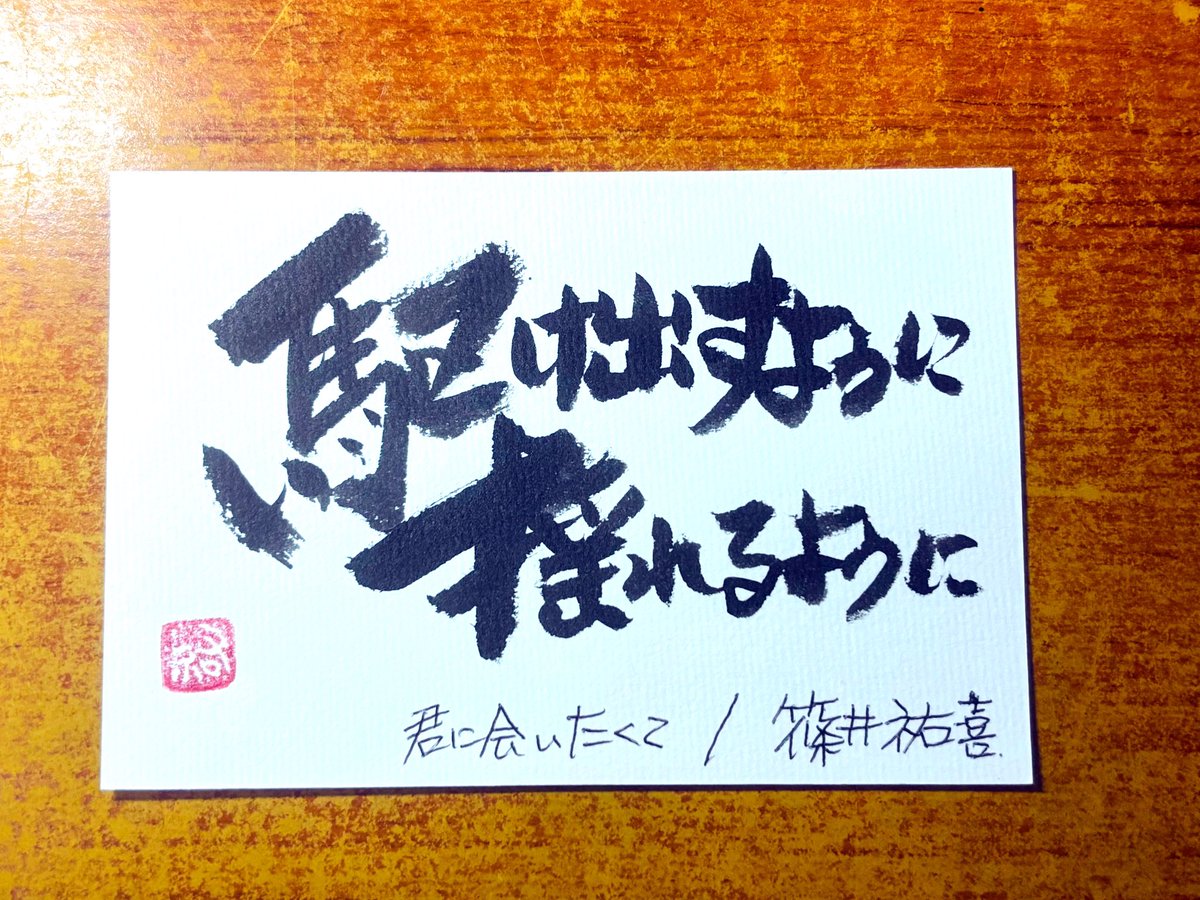 駆け出すように
揺れるように
君に会いたくて / 篠井祐喜